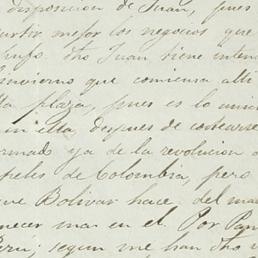 disposicion de Juan, pues
mejor los negocios que
dho Juan tiene inten
invierno que comiensa alli
la plaza, pues es lo unico
en ella, despues de costearse
ormado ya de la revolucion
peles de Colombia, pero
ue Bolivar hace del man
necer mas en el. Por Pan
Perú; segun me han dho